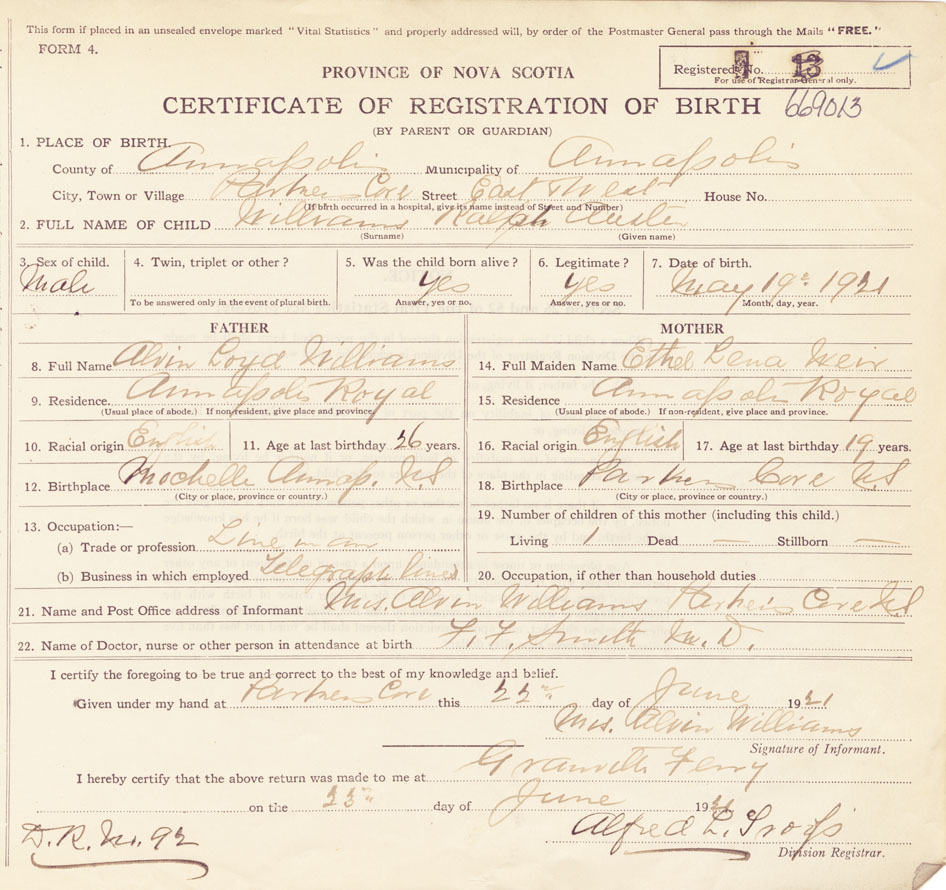 This form if placed in an unsealed envelope marked "Vital Statistics" and properly addressed will, by order of the Postmaster General pass through the Mails "FREE."
FORM 4.
Registered No. 13
For use of Registrar-General only.
PROVINCE OF NOVA SCOTIA
CERTIFICATE OF REGISTRATION OF BIRTH 669013
(BY PARENT OR GUARDIAN)
1. PLACE OF BIRTH.
County of Annapolis Municipality of Annapolis
City, Town or Village Parkers Cove Street East & West House No.
(If birth occurred in a hospital, give its name instead of Street and Number)
2. FULL NAME OF CHILD Williams Ralph Austen
(Surname) (Given name)
3. Sex of child. 4. Twin, triplet or other? 5. Was the child born alive? 6. Legitimate? 7. Date of birth.
Male yes yes May 19th 1921
To be answered only in the event of plural birth. Answer, yes or no. Answer, yes or no. Month, day, year.
FATHER MOTHER
8. Full Name Alvin Loyd Williams 14. Full Maiden Name Ethel Lena Weir
9. Residence Annapolis Royal 15. Residence Annapolis Royal
(Usual place of abode.) If non-resident, give place and province. (Usual place of abode.) If non-resident, give place and province.
10. Racial origin English 11. Age at last birthday 26 years. 16. Racial origin English 17. Age at last birthday 19 years.
12. Birthplace Mochelle Annap. N.S 18. Birthplace Parkers Cove N.S
(City or place, province or country.) (City or place, province or country.)
13. Occupation:— 19. Number of children of this mother (including this child.)
(a) Trade or profession Line man Living 1 Dead — Stillborn —
(b) Business in which employed Telegraph lines 20. Occupation, if other than household duties
21. Name and Post Office address of Informant Mrs. Alvin Williams Parkers Cove N.S
22. Name of Doctor, nurse or other person in attendance at birth F. F. Smith M.D.
I certify the foregoing to be true and correct to the best of my knowledge and belief.
Given under my hand at Parkers Cove this 22nd day of June 1921
Mrs. Alvin Williams
Signature of Informant.
I hereby certify that the above return was made to me at Granville Ferry
on the 23rd day of June 1921
D. R. No. 92 Alfred L. Troop
Division Registrar.